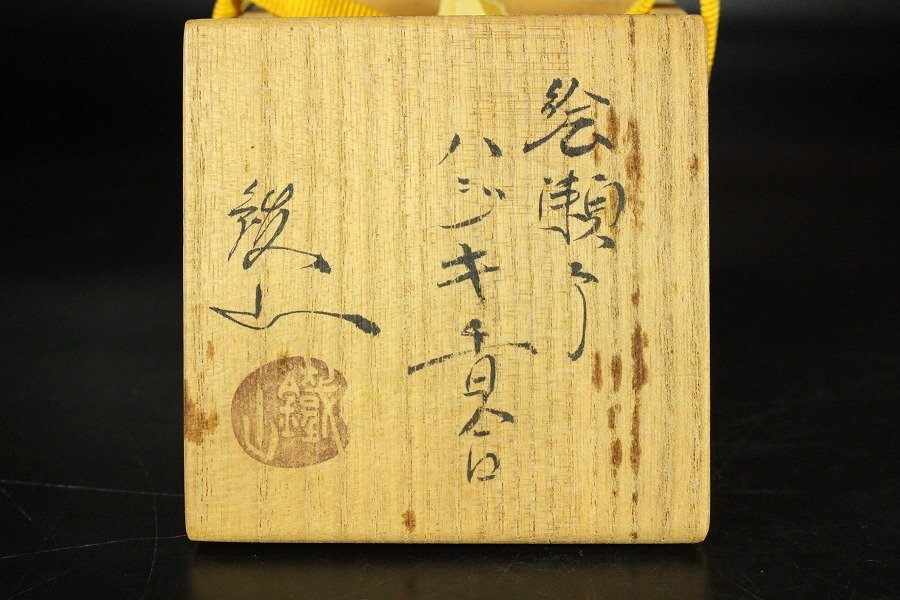 絵瀬戸
ハジキ香合
鉄山
鐵山